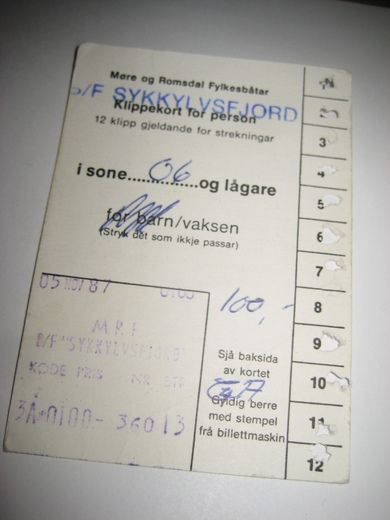 Møre og Romsdal Fylkesbåtar
B/F SYKKYLVSFJORD
Klippekort for person
12 klipp gjeldande for strekningar
i sone 06 og lågare
for barn/vaksen
(Stryk det som ikkje passar)
05 NOV 87 0.00
M R F
B/F "SYKKYLVSFJORD"
KODE PRIS NR BTP
3A*0100- 36013
100,-
Sjå baksida
av kortet
Gyldig berre
med stempel
frå billettmaskin
3
4
5
6
7
8
9
10
11
12